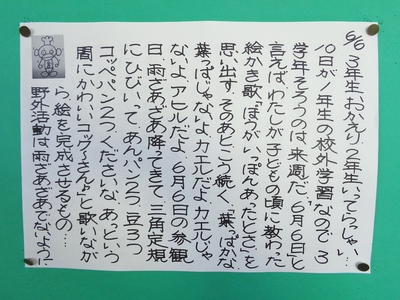 6/6 3年生、おかえり、2年生いってらっしゃい…
10日が1年生の校外学習なので 3
学年そろうのは来週だ。"6月6日"と
言えば、わたしが子どもの頃に教わった
絵かき歌『ぼうがいっぽんあったとさ』を
思い出す。そのあとこう続く。「葉っぱかな
葉っぱじゃないよ カエルだよ カエルじゃ
ないよ アヒルだよ 6月6日の参観
日 雨ざあざあ降ってきて 三角定規
にひびいって あんパン2つ 豆3つ
コッペパン2つ くださいな あっという
間にかわいいコックさん♪」と歌いなが
ら 絵を完成させるもの…
野外活動は雨ざあざあでないように